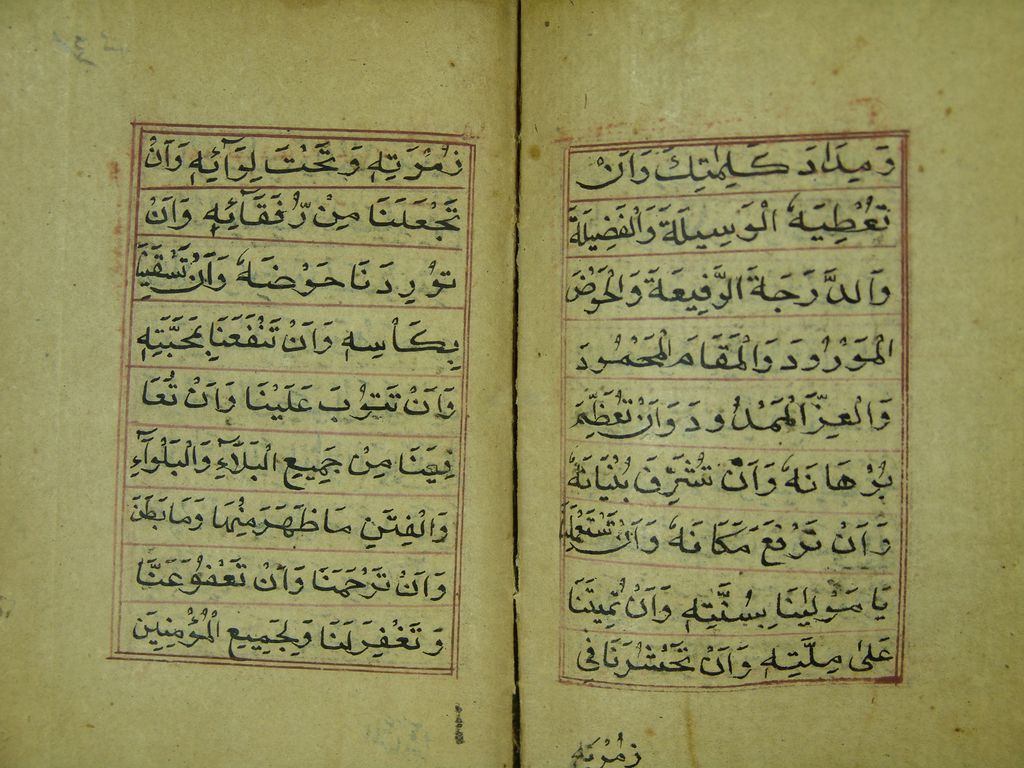 وَمِدَادَ كَلِمَتِكَ وَاَنْ
تُعْطِيَهُ الْوَسِيلَةَ وَالْفَضِيلَةَ
وَالدَّرَجَةَ الرَّفِيعَةَ وَالْحَوْضَ
الْمَوْرُودَ وَالْمَقَامَ الْمَحْمُودَ
وَالْعِزَّ الْمَمْدُودَ وَاَنْ تُعَظِّمَ
بُرْهَانَهُ وَاَنْ تُشَرِّفَ بُنْيَانَهُ
وَاَنْ تَرْفَعَ مَكَانَهُ وَاَنْ تَسْتَعْمِلَنَا
يَا مَوْلٰينَا بِسُنَّتِهِ وَاَنْ تُمِيتَنَا
عَلٰى مِلَّتِهِ وَاَنْ تَحْشُرَنَا فِي
زُمْرَتِهِ
زُمْرَتِهِ وَتَحْتَ لِوَآئِهِ وَاَنْ
تَجْعَلَنَا مِنْ رُّفَقَآئِهِ وَاَنْ
تُورِدَنَا حَوْضَهُ وَاَنْ تَسْقِيَنَا
بِكَاْسِهِ وَاَنْ تَنْفَعَنَا بِمَحَبَّتِهِ
وَاَنْ تَتُوبَ عَلَيْنَا وَاَنْ تُعَا
فِيَنَا مِنْ جَمِيعِ الْبَلَآءِ وَالْبَلْوَآءِ
وَالْفِتَنِ مَا ظَهَرَ مِنْهَا وَمَا بَطَنَ
وَاَنْ تَرْحَمَنَا وَاَنْ تَعْفُوَ عَنَّا
وَتَغْفِرَ لَنَا وَلِجَمِيعِ الْمُؤْمِنِينَ